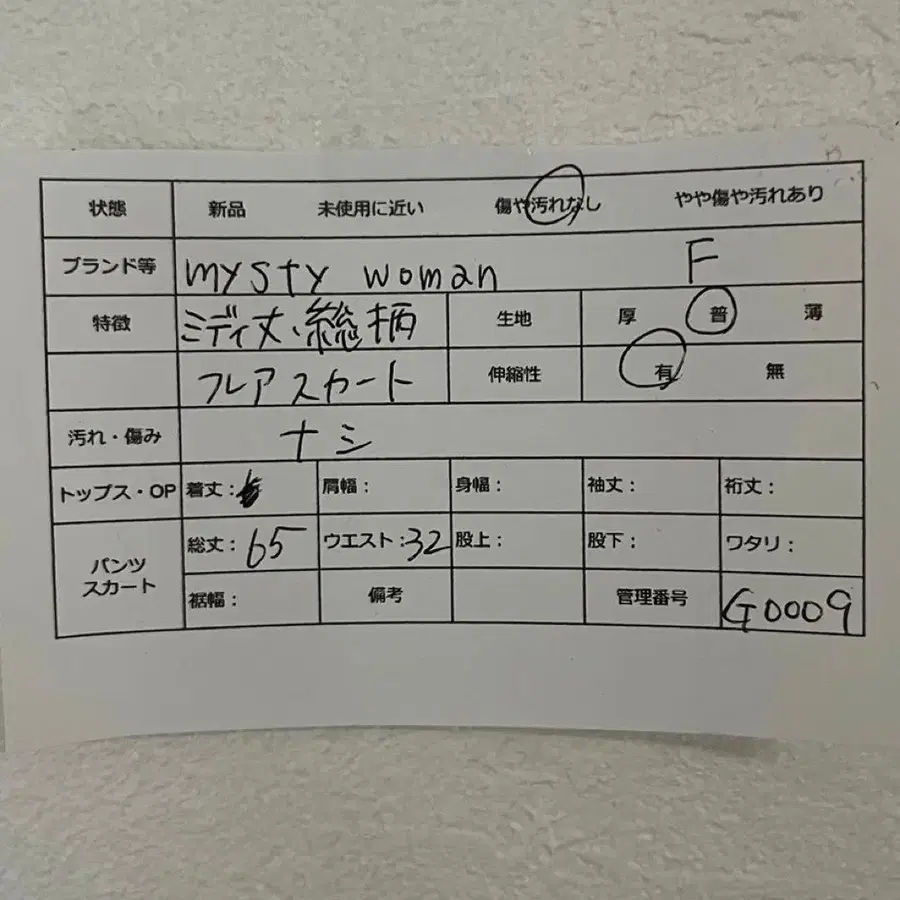 状態 新品 未使用に近い 傷や汚れなし やや傷や汚れあり
ブランド等 mysty woman F
特徴 ミディ丈、総柄 生地 厚 普 薄
フレアスカート 伸縮性 有 無
汚れ・傷み ナシ
トップス・OP 着丈: 肩幅: 身幅: 袖丈: 裄丈:
パンツ スカート 総丈: 65 ウエスト: 32 股上: 股下: ワタリ:
裾幅: 備考 管理番号 G0009